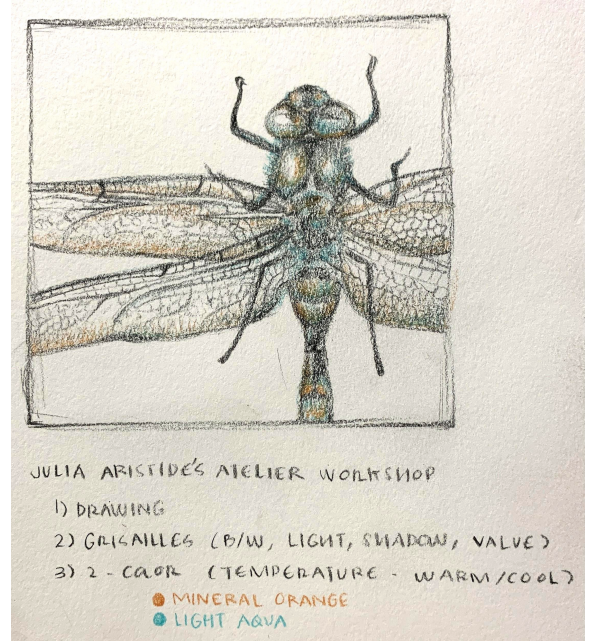 JULIA ARISTIDE'S ATELIER WORKSHOP
1) DRAWING
2) GRISAILLES (B/W, LIGHT, SHADOW, VALUE)
3) 2-COLOR (TEMPERATURE - WARM/COOL)
MINERAL ORANGE
LIGHT AQUA